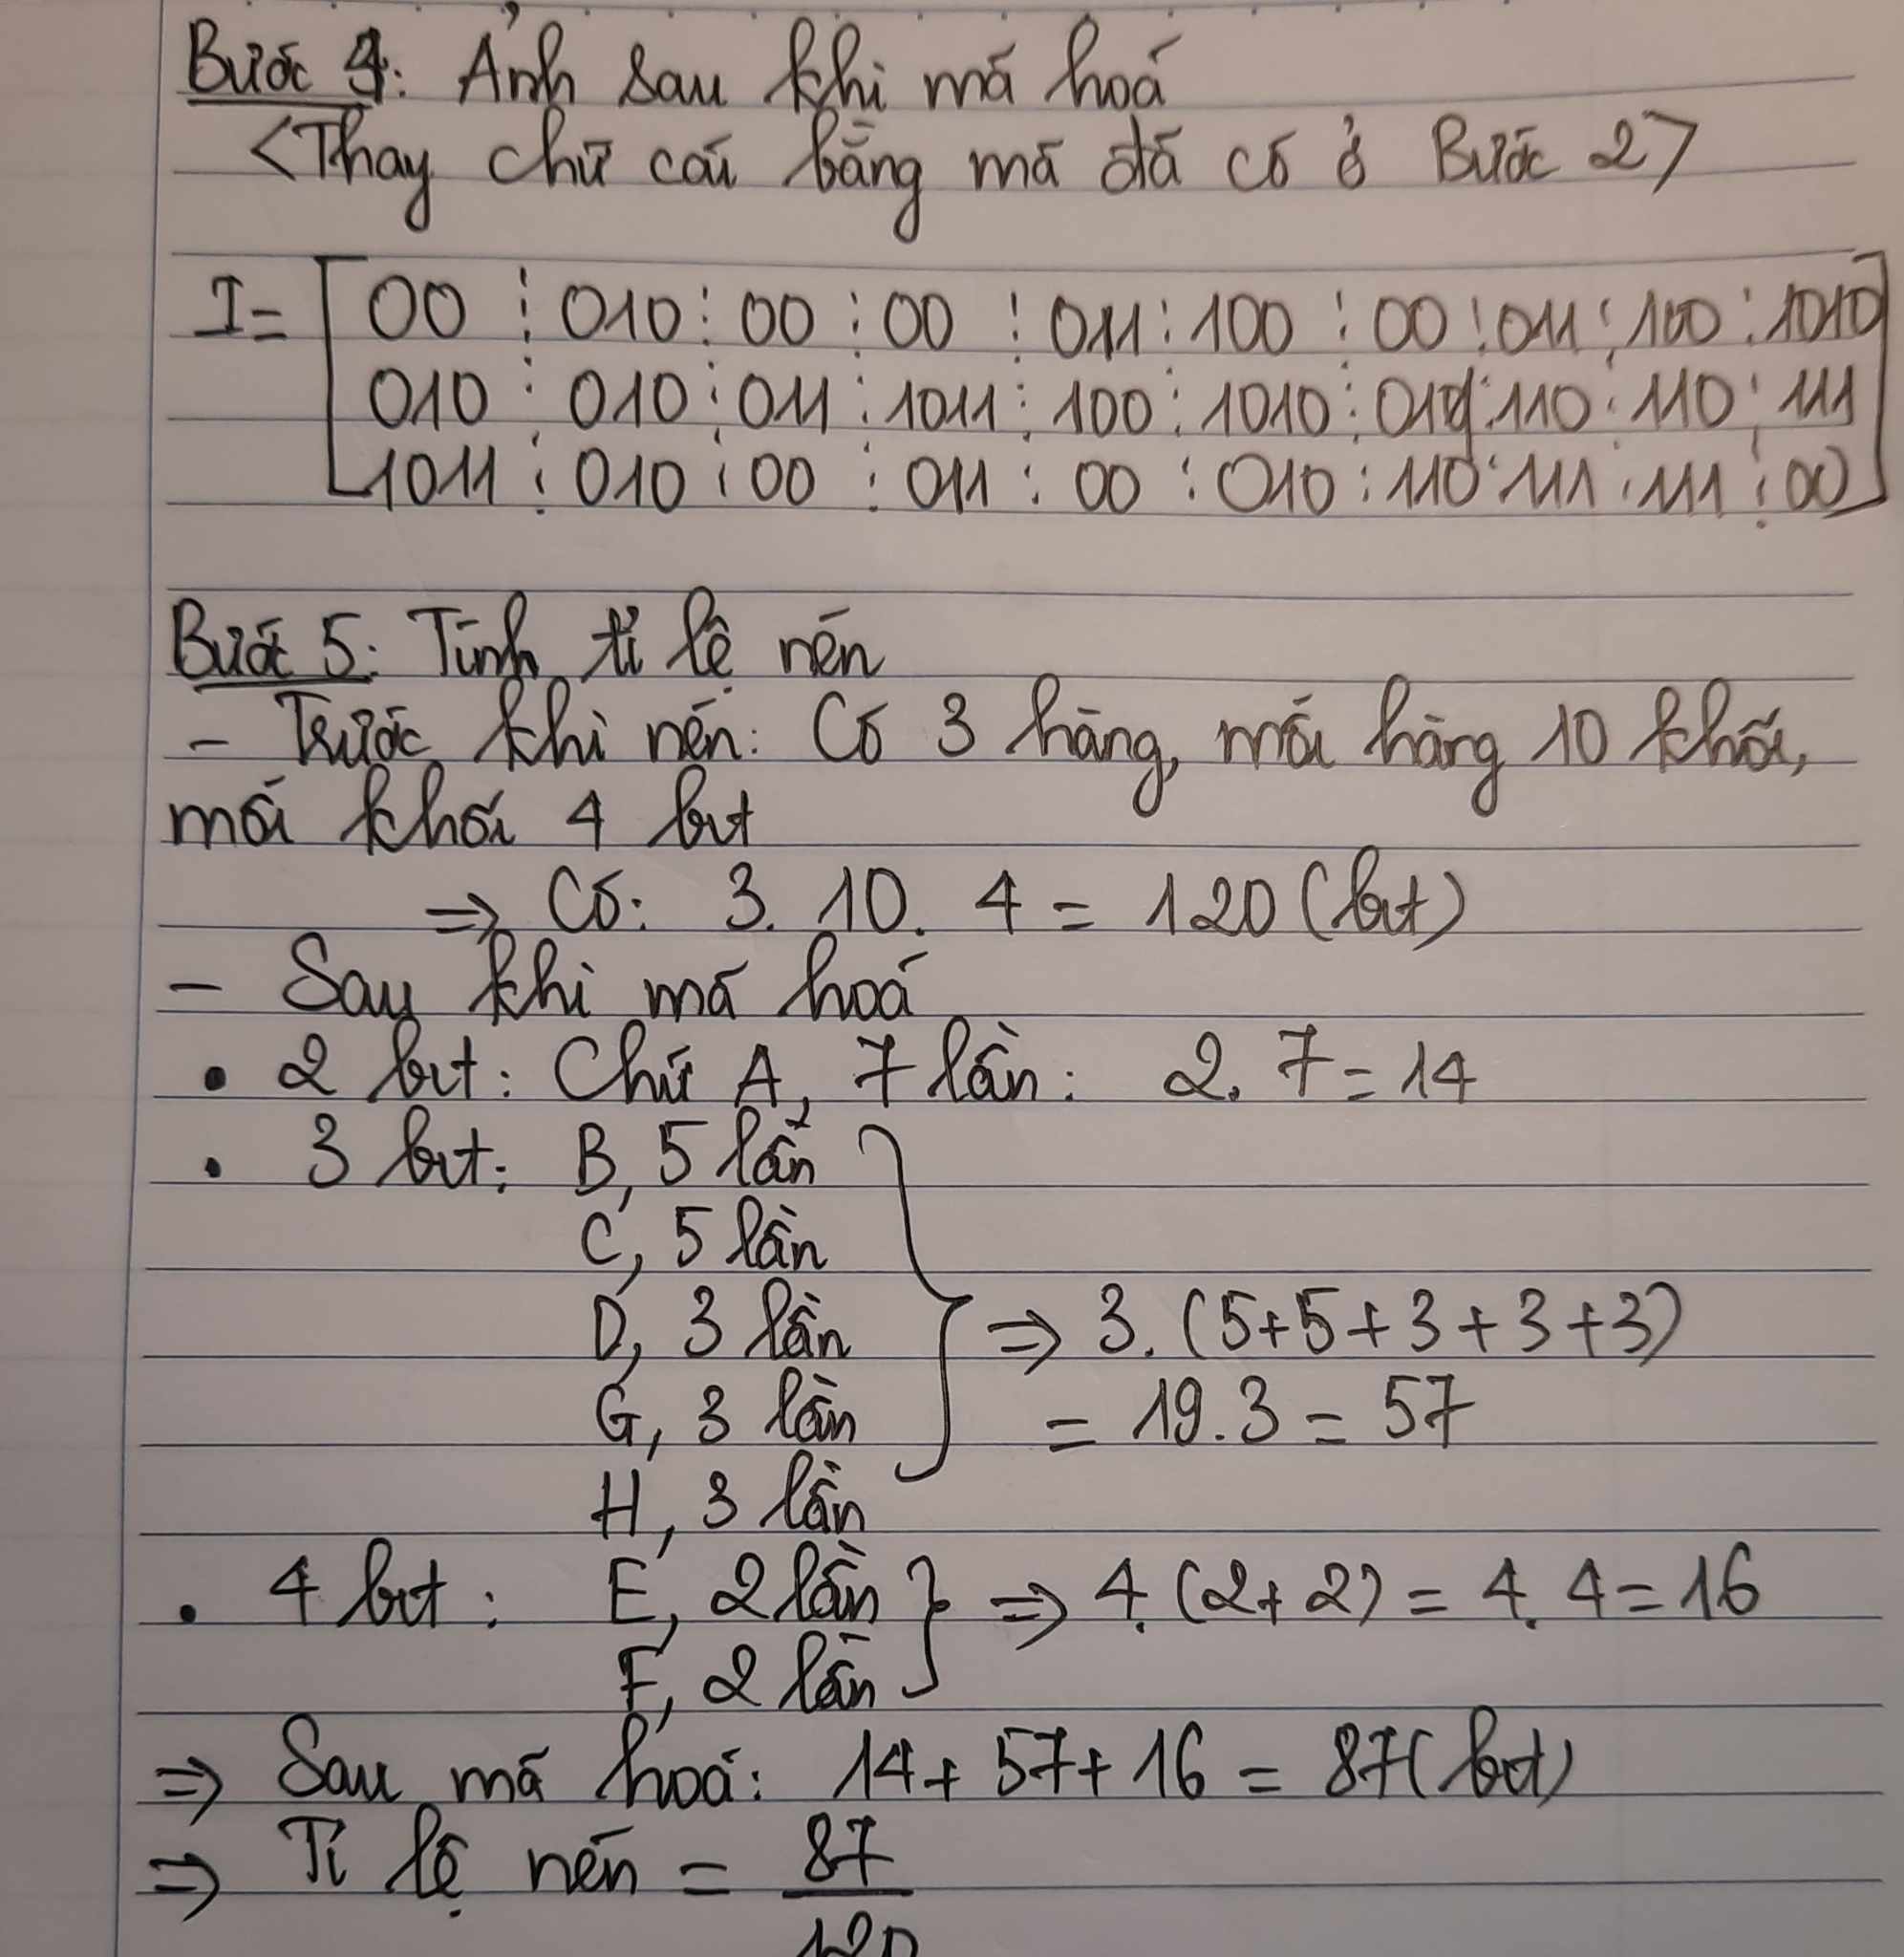 Bước 4: Ảnh sau khi mã hoá
<Thay chữ cái bằng mã đã có ở Bước 2>
I = [ 00 ⋮ 010 ⋮ 00 ⋮ 00 ⋮ 011 ⋮ 100 ⋮ 00 ⋮ 011 ⋮ 100 ⋮ 1010
010 ⋮ 010 ⋮ 011 ⋮ 1011 ⋮ 100 ⋮ 1010 ⋮ 010 ⋮ 110 ⋮ 110 ⋮ 111
1011 ⋮ 010 ⋮ 00 ⋮ 011 ⋮ 00 ⋮ 010 ⋮ 110 ⋮ 111 ⋮ 111 ⋮ 00 ]
Bước 5: Tính tỉ lệ nén
- Trước khi nén: Có 3 hàng, mỗi hàng 10 khối,
mỗi khối 4 bit
=> Có: 3. 10. 4 = 120 (bit)
- Sau khi mã hoá
• 2 bit: Chữ A, 7 lần: 2. 7 = 14
• 3 bit: B, 5 lần
C, 5 lần
D, 3 lần => 3. (5+5+3+3+3)
G, 3 lần = 19.3 = 57
H, 3 lần
• 4 bit: E, 2 lần } => 4. (2+2) = 4. 4 = 16
F, 2 lần
=> Sau mã hoá: 14 + 57 + 16 = 87 (bit)
=> Tỉ lệ nén = 87
120